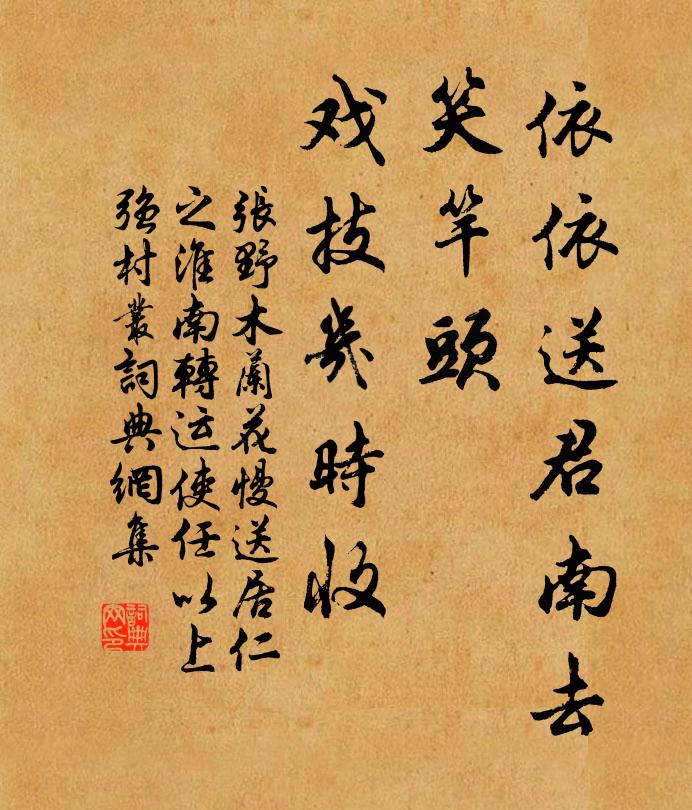 依依送君南去
笑竿頭
戏技幾時收
張野木蘭花慢送居仁
之淮南轉运使任以上
强村叢詞典網集
詞典网印